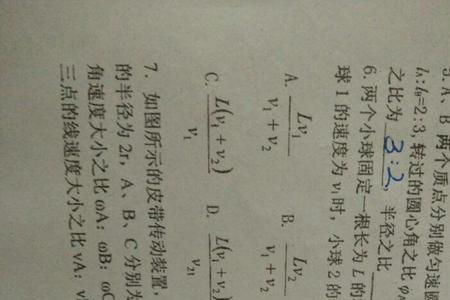 5. A、B 两个质点分别做匀速
lA:lB=2:3, 转过的圆心角之比 φ
之比为 3:2, 半径之比
6. 两个小球固定一根长为 L 的
球 1 的速度为 v₁ 时, 小球 2 的
A. Lv₁/(v₁+v₂) B. Lv₂/(v₁+v₂)
C. L(v₁+v₂)/v₁ D. L(v₁+v₂)/v₂₁
7. 如图所示的皮带传动装置,
的半径为 2r, A、B、C 分别为
角速度大小之比 ωA: ωB: ωC
三点的线速度大小之比 vA: v